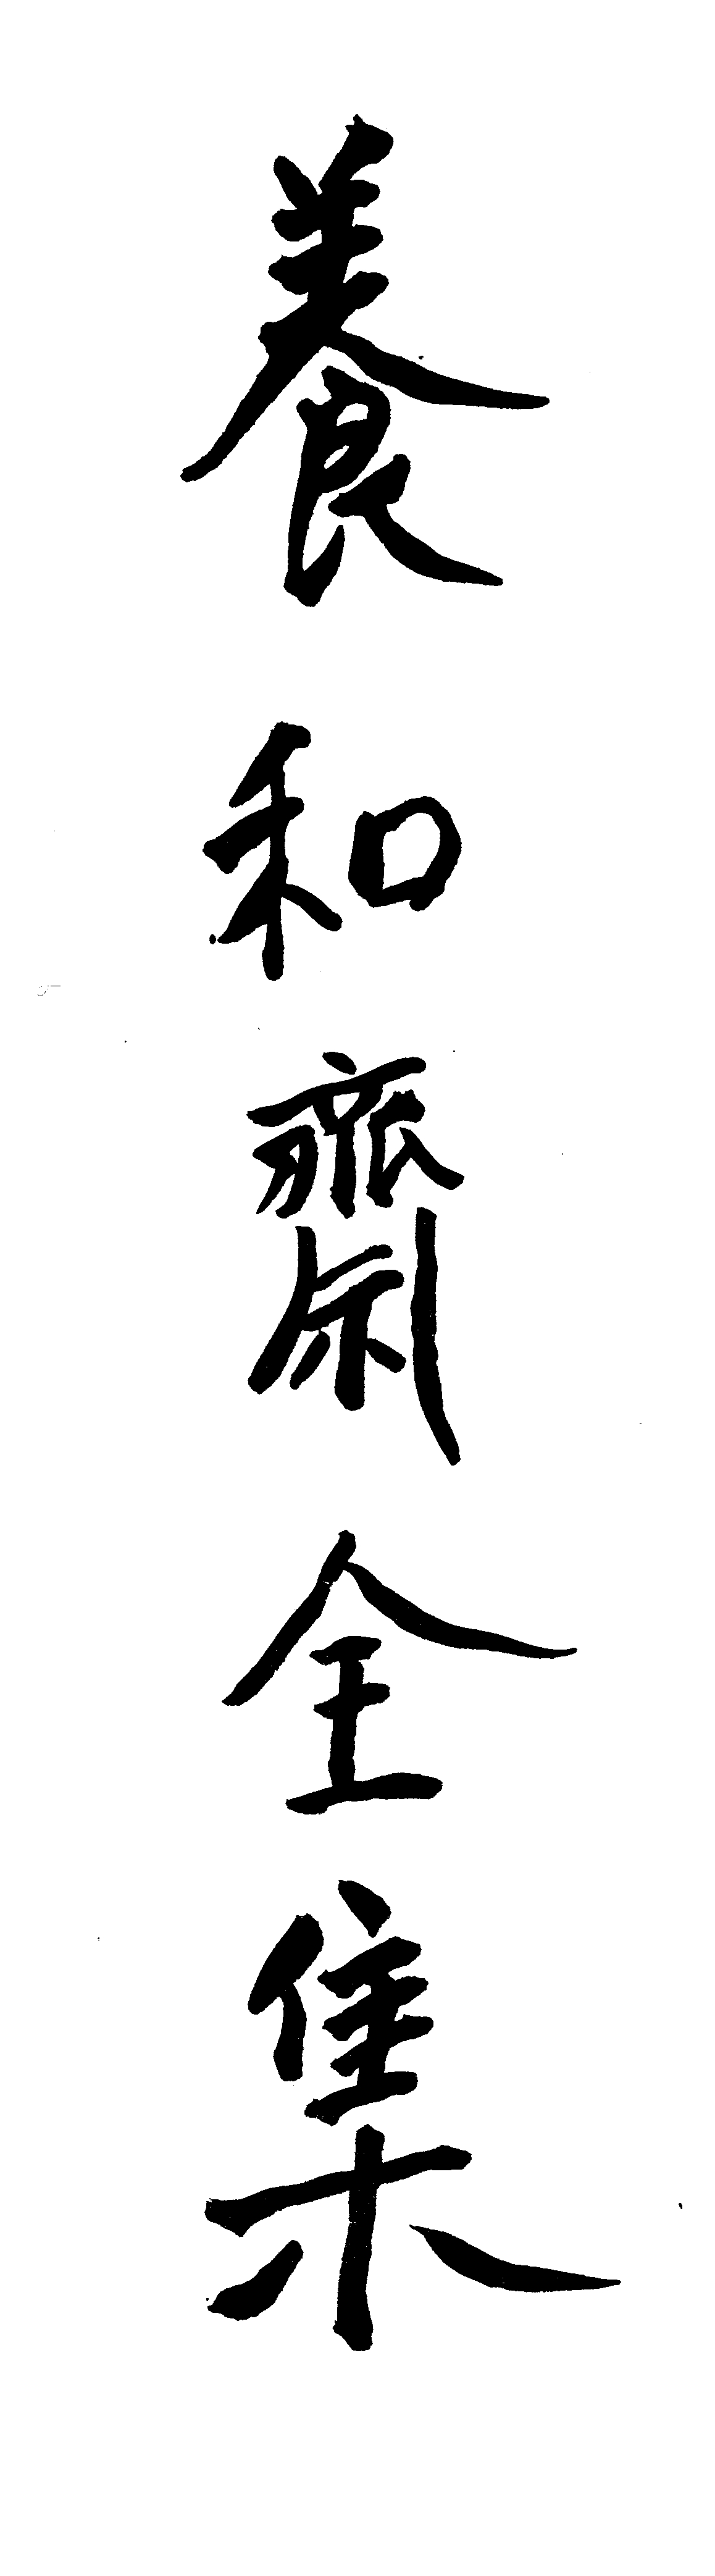 養和齋全集